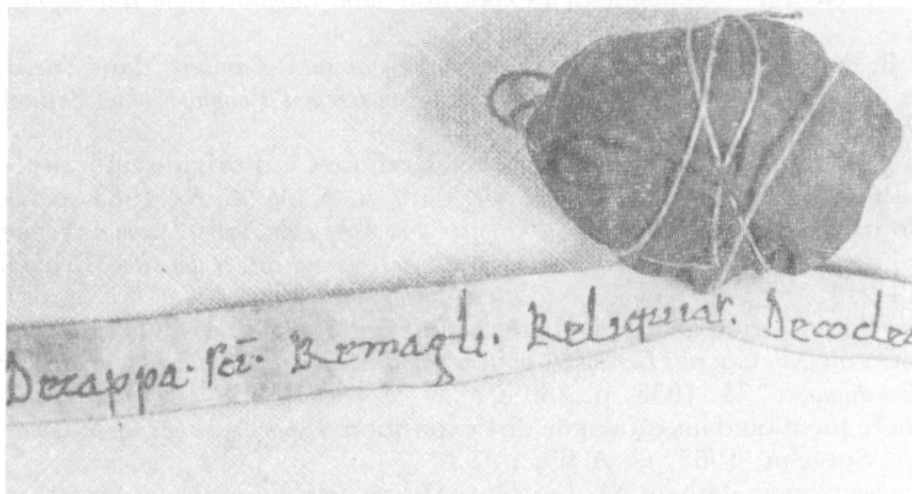 Decappa. scī. Remagli. Reliquiar. Decocles